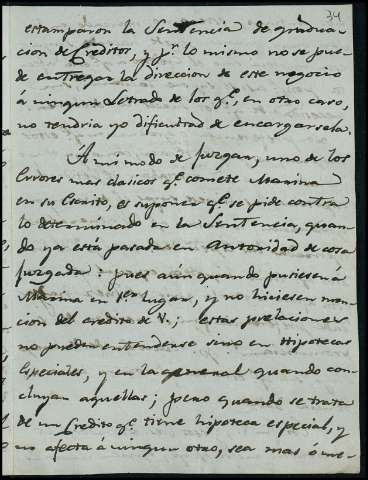 34
estamparon la Sentencia de gradua-
cion de Creditos, y pr. lo mismo no se pue-
de entregar la direccion de este negocio
á ningun Letrado de los qe., en otro caso,
no tendria yo dificultad de encargarsela.
Á mi modo de juzgar, uno de los
Errores mas clasicos qe. comete Manina
en su Escrito, es suponer qe. se pide contra
lo determinado en la Sentencia, quan-
do ya está pasada en Autoridad de cosa
juzgada: pues aun quando pusiesen á
Manina en 1er. lugar, y no hiciesen man-
cion del credito de V.; estas prelaciones
no pueden entenderse sino en Hipotecas
Especiales, y en la general quando con-
cluyan aquellas; pero quando se trata
de un Credito qe. tiene hipoteca especial, y
no afecta á ningun otro, sea mas ó me-